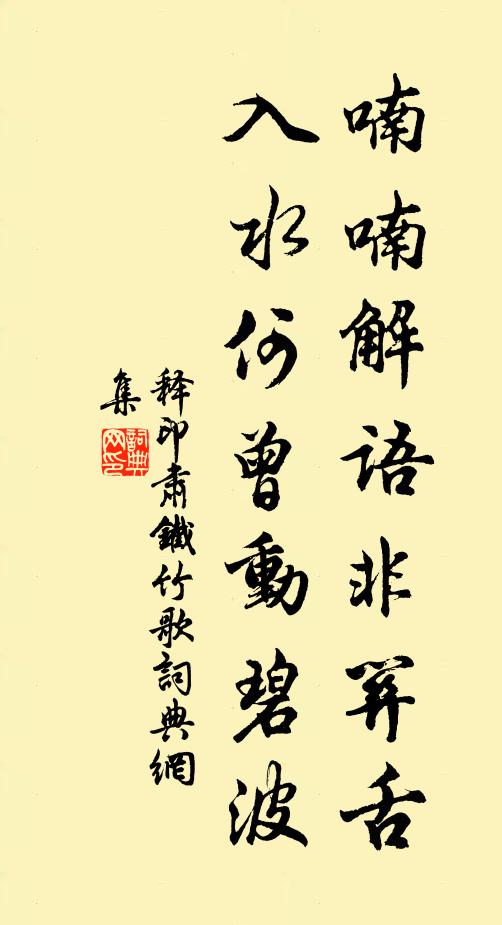 喃喃解語非關舌
入水何曾動碧波
释印肃鐵竹歌詞典網
集
詞典
网印